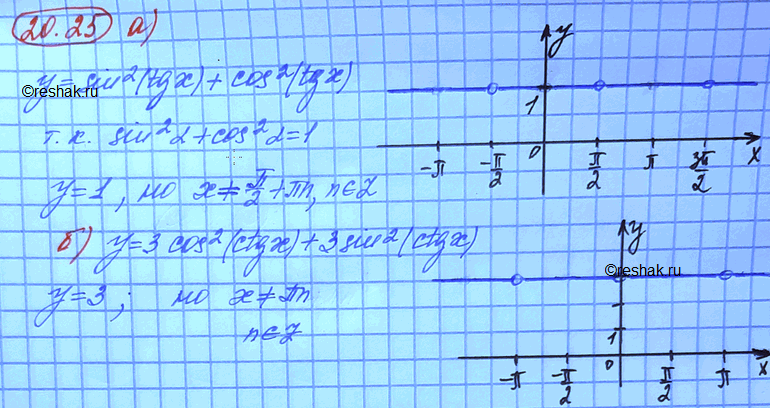 20.25 а)
y = sin²(tgx) + cos²(tgx)
©reshak.ru
т.к. sin²α + cos²α = 1
y = 1, но x ≠ π/2 + πn, n ∈ Z
y
1
-π -π/2 0 π/2 π 3π/2 x
б) y = 3 cos²(ctgx) + 3 sin²(ctgx)
y = 3; но x ≠ πn
n ∈ Z
y
©reshak.ru
1
-π -π/2 0 π/2 π x